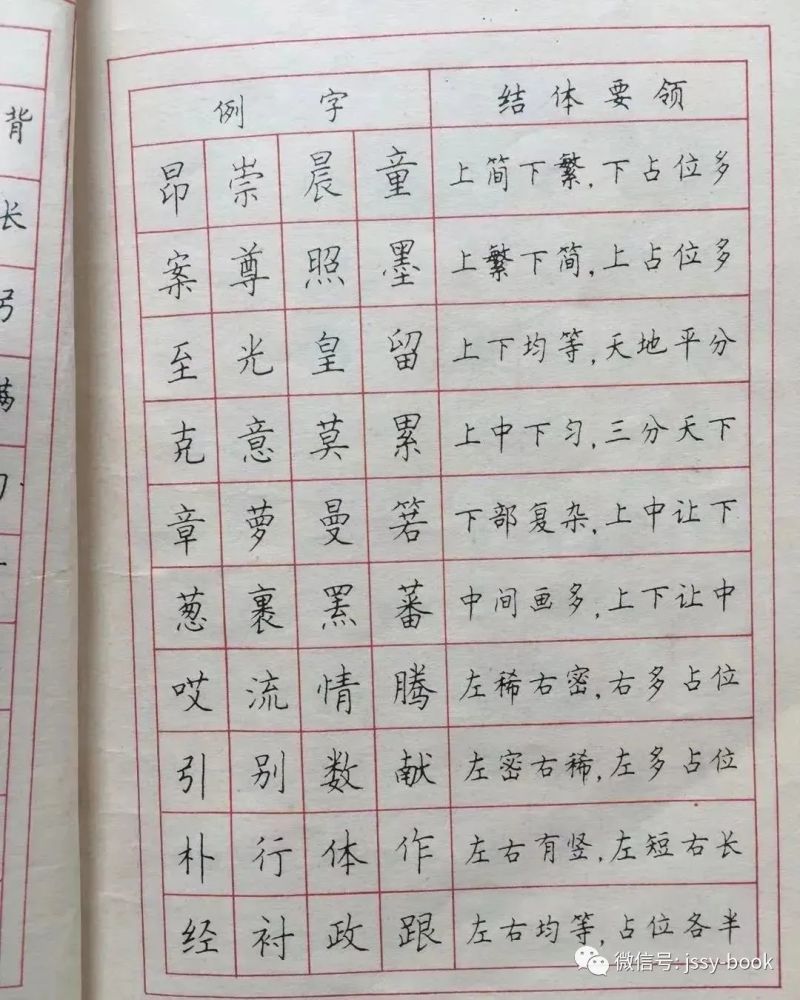 背
长
例字 结体要领
昂 崇 晨 童 上简下繁,下占位多
案 尊 照 墨 上繁下简,上占位多
至 光 皇 留 上下均等,天地平分
克 意 莫 累 上中下匀,三分天下
章 萝 曼 箬 下部复杂,上中让下
葱 裹 黑 蕃 中间画多,上下让中
哎 流 情 腾 左稀右密,右多占位
引 别 数 献 左密右稀,左多占位
朴 行 体 作 左右有竖,左短右长
经 衬 政 跟 左右均等,占位各半
微信号: jssy-book